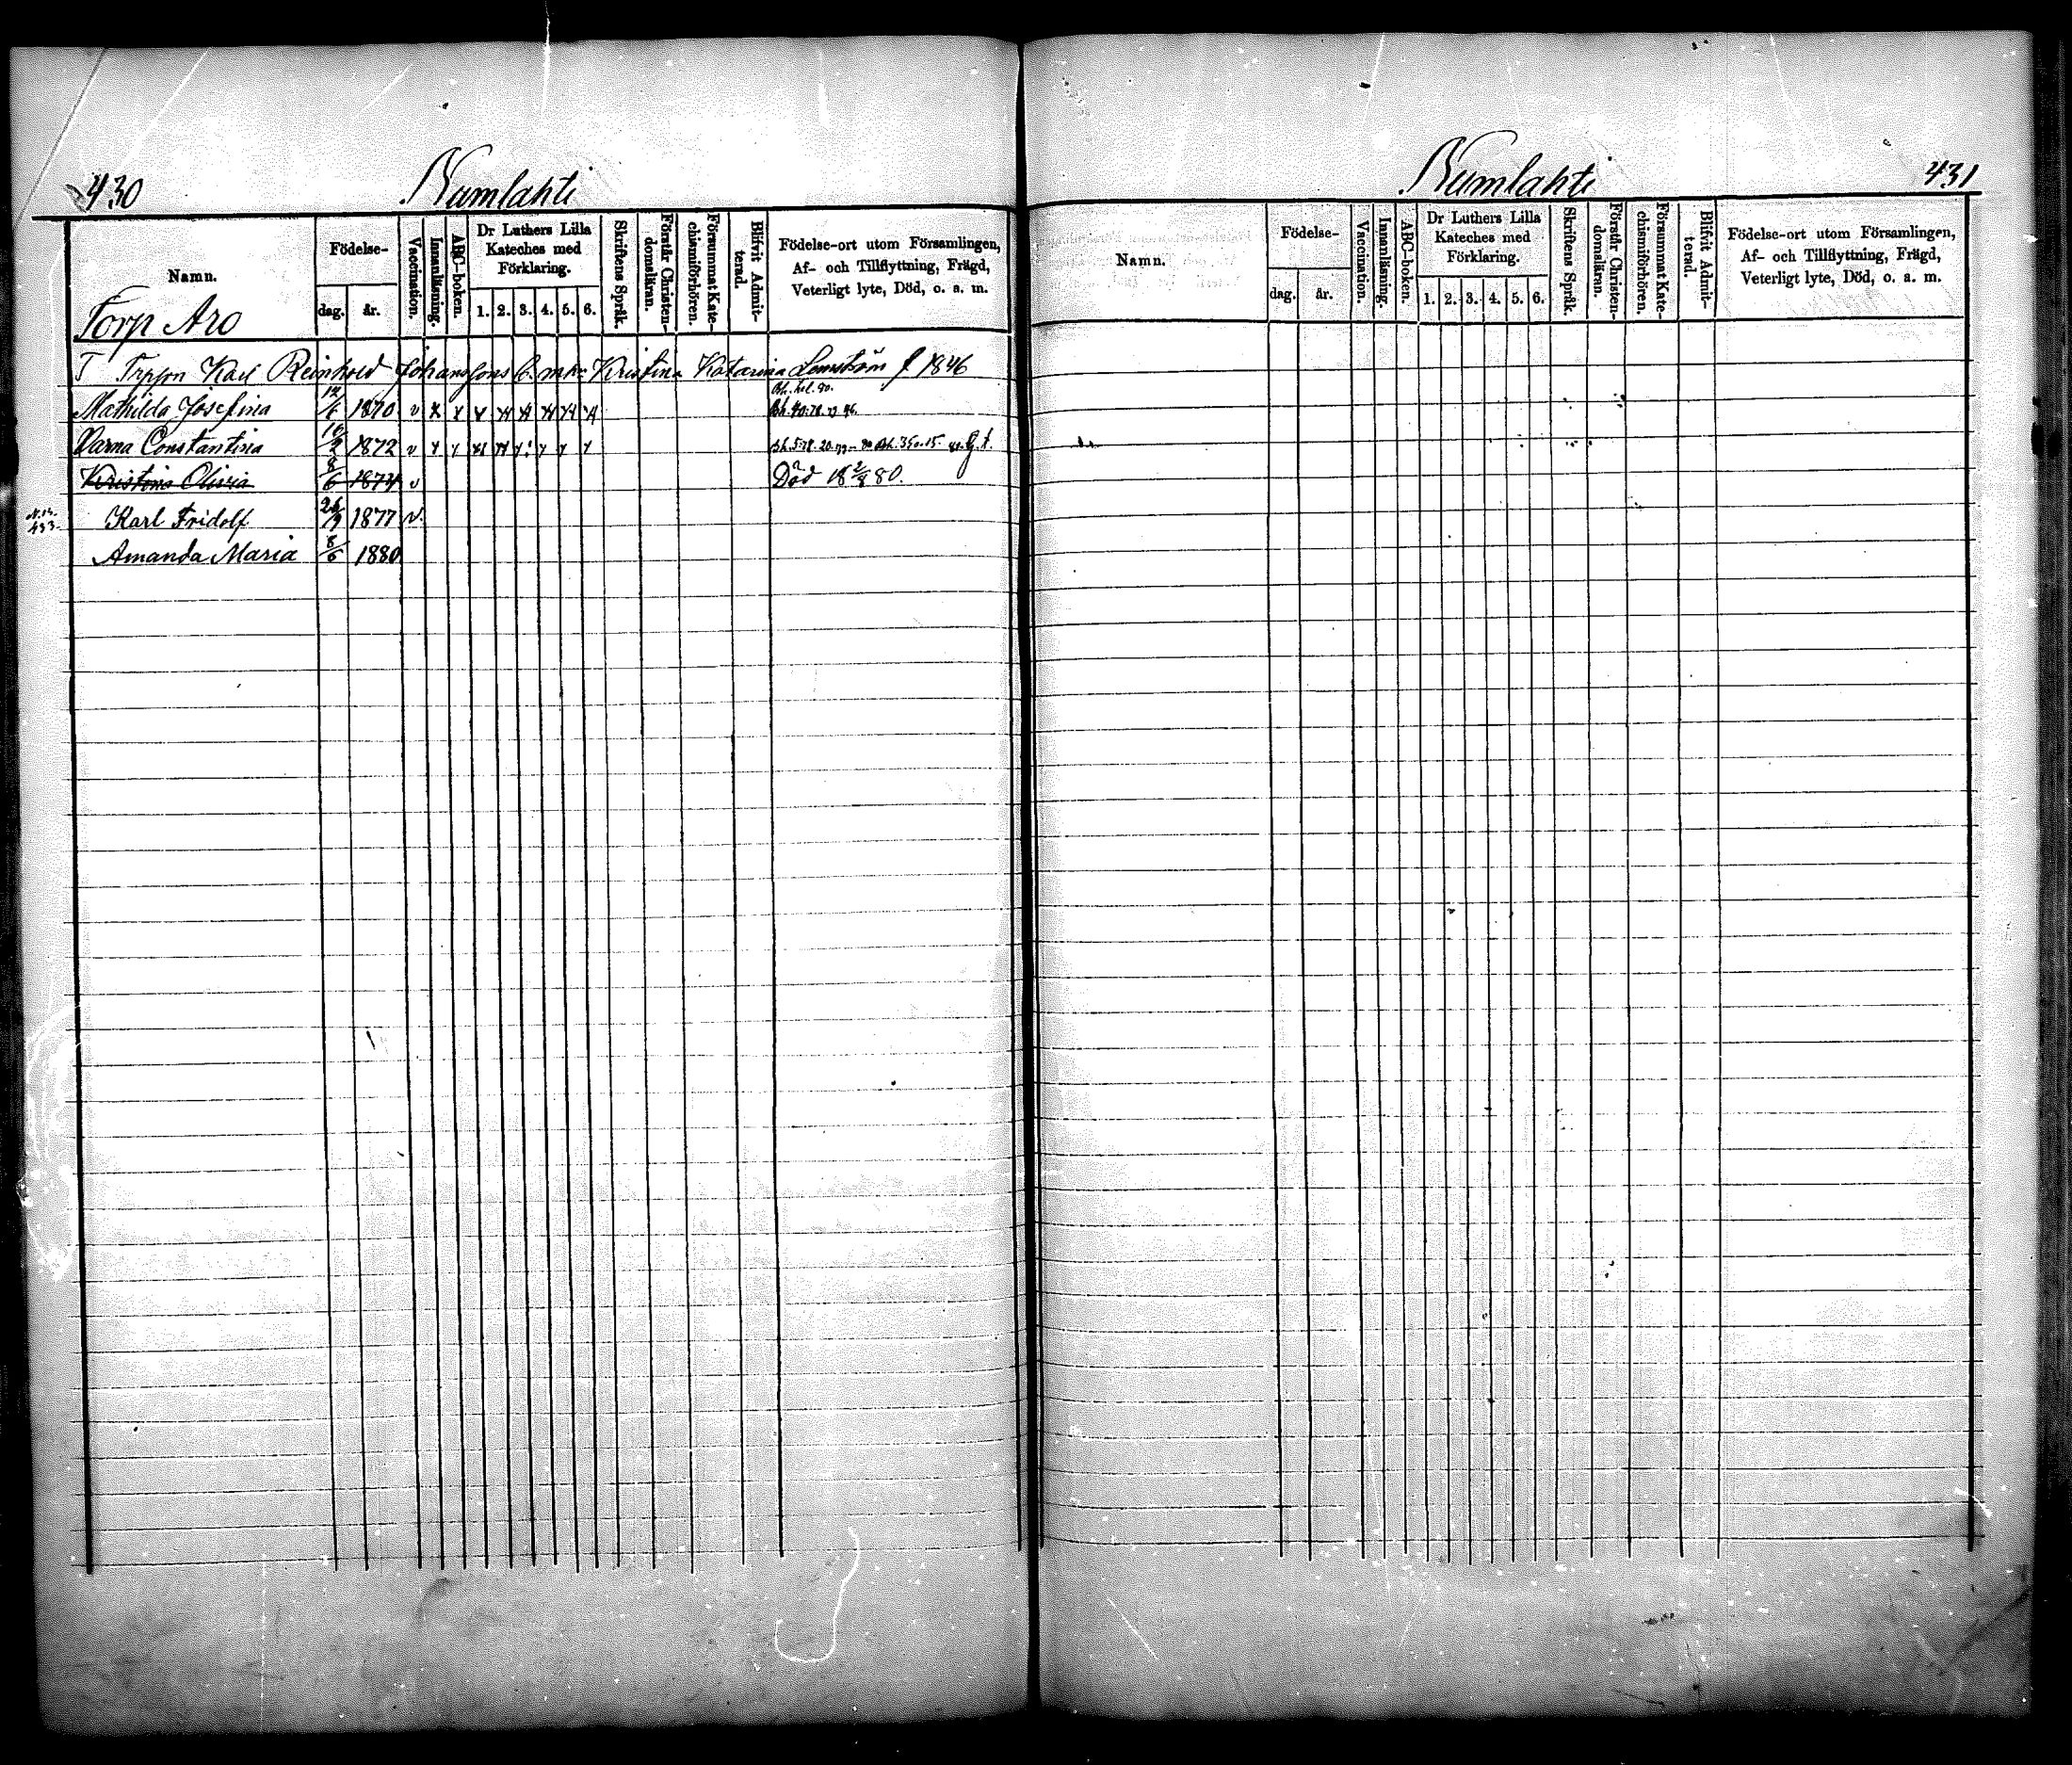 430
Numlahti
Namn.
Födelse-
dag. år.
Vaccination.
Innanläsning.
ABC-boken.
Dr Luthers Lilla Kateches med Förklaring.
1. 2. 3. 4. 5. 6.
Skriftens Språk.
Förstår Christen-domsläran.
Försummat Kate-chismiförhören.
Blifvit Admit-terad.
Födelse-ort utom Församlingen,
Af- och Tillflyttning, Frägd,
Veterligt lyte, Död, o. a. m.
Torp Aro
T Karl Reinhold Johanssons Kristina Katarina Lemström f 1846
Mathilda Josefina 12/6 1870 v
Constantina 1872 v
Kristina Olivia 8/6 1874 v Död 18 2/8 80.
433 Karl Fridolf 26/9 1877 v.
Amanda Maria 8/6 1880
Numlahti
431
Namn.
Födelse-
dag. år.
Vaccination.
Innanläsning.
ABC-boken.
Dr Luthers Lilla Kateches med Förklaring.
1. 2. 3. 4. 5. 6.
Skriftens Språk.
Förstår Christen-domsläran.
Försummat Kate-chismiförhören.
Blifvit Admit-terad.
Födelse-ort utom Församlingen,
Af- och Tillflyttning, Frägd,
Veterligt lyte, Död, o. a. m.